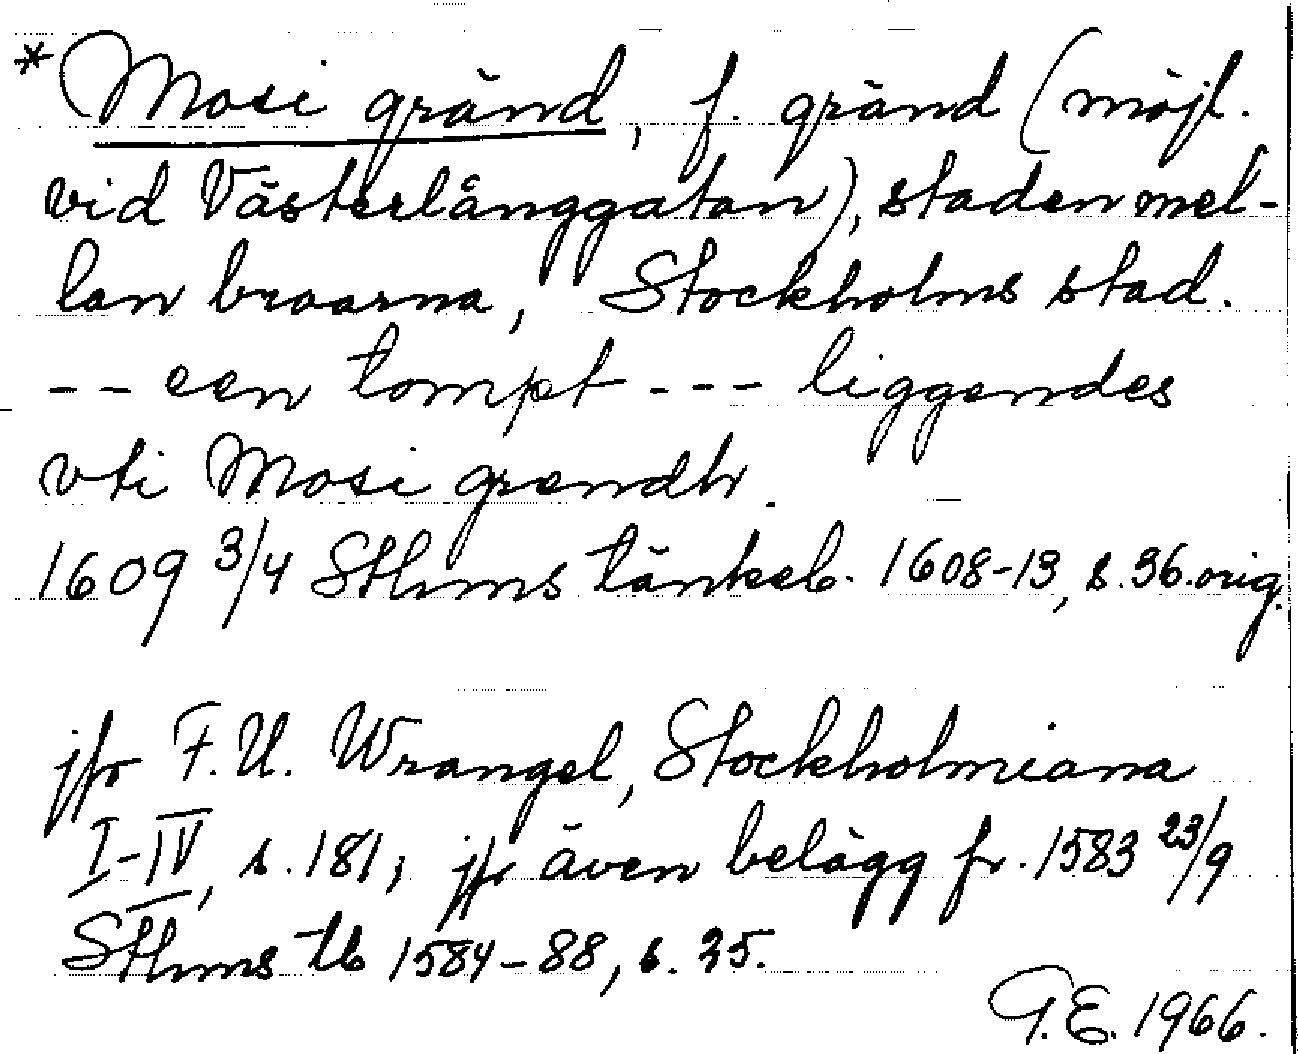 * Mosi gränd, f. gränd (möjl.
vid Västerlånggatan), staden mel-
lan broarna, Stockholms stad.
-- een tompt --- liggendes
vti Mosi grendh.
1609 3/4 Sthms tänkeb. 1608-13, s. 36. orig.
jfr F.U. Wrangel, Stockholmiana
I-IV, s. 181; jfr även belägg fr. 1583 23/9
Sthms tb 1584-88, s. 35.
G.E. 1966.